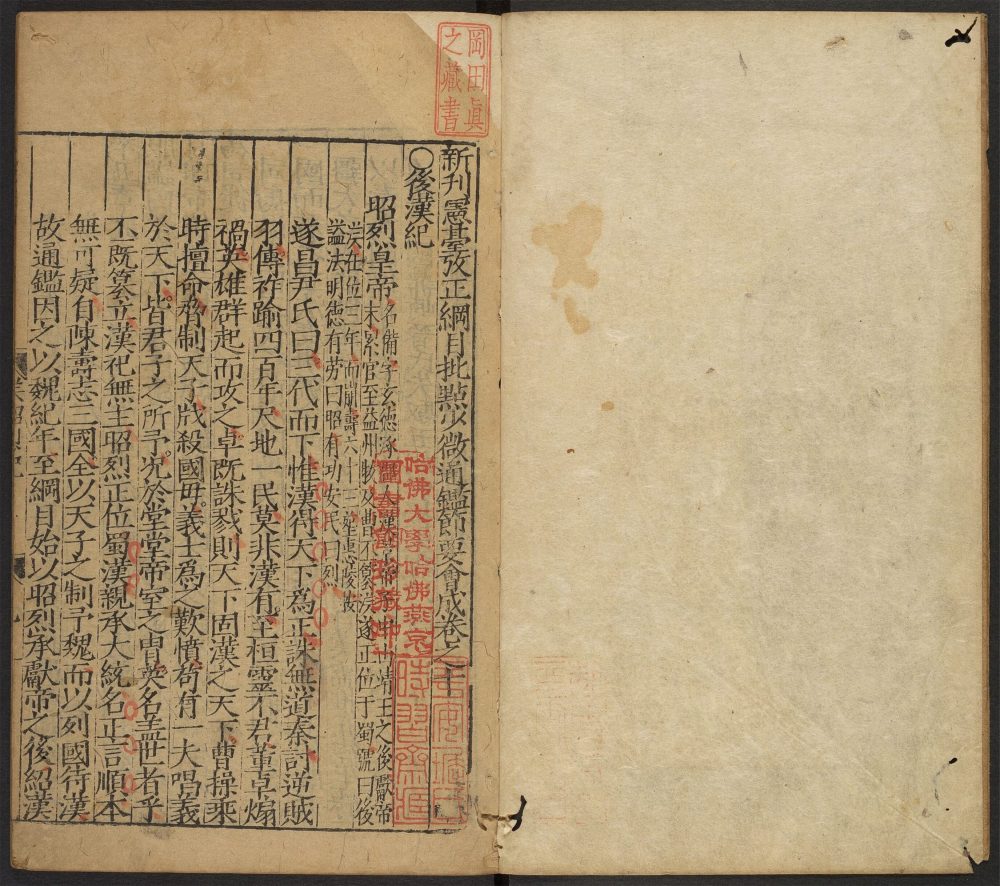 新刊憲臺攷正綱目批點少微通鑑節要會成卷之二十
○後漢紀
昭烈皇帝
名備字玄德涿郡人漢景帝子中山靖王之後獻帝
末累官至益州牧及曹丕簒漢遂正位于蜀號曰後
漢在位三年而崩壽六十三葬惠陵按
謚法明德有勞曰昭有功安民曰烈
遂昌尹氏曰三代而下惟漢得天下為正誅無道秦討逆賊
羽傳祚踰四百年尺地一民莫非漢有至桓靈不君董卓煽
禍英雄群起而攻之卓既誅戮則天下固漢之天下曹操乘
時擅命脅制天子戕殺國母義士為之歎憤苟有一夫唱義
於天下皆君子之所予况於堂堂帝室之胄英名盖世者乎
丕既簒立漢祀無主昭烈正位蜀漢親承大統名正言順本
無可疑自陳壽志三國全以天子之制予魏而以列國待漢
故通鑑因之以魏紀年至綱目始以昭烈承獻帝之後紹漢
岡田眞
之藏書
哈佛大學哈佛燕京
圖書館珍藏印
時習齋